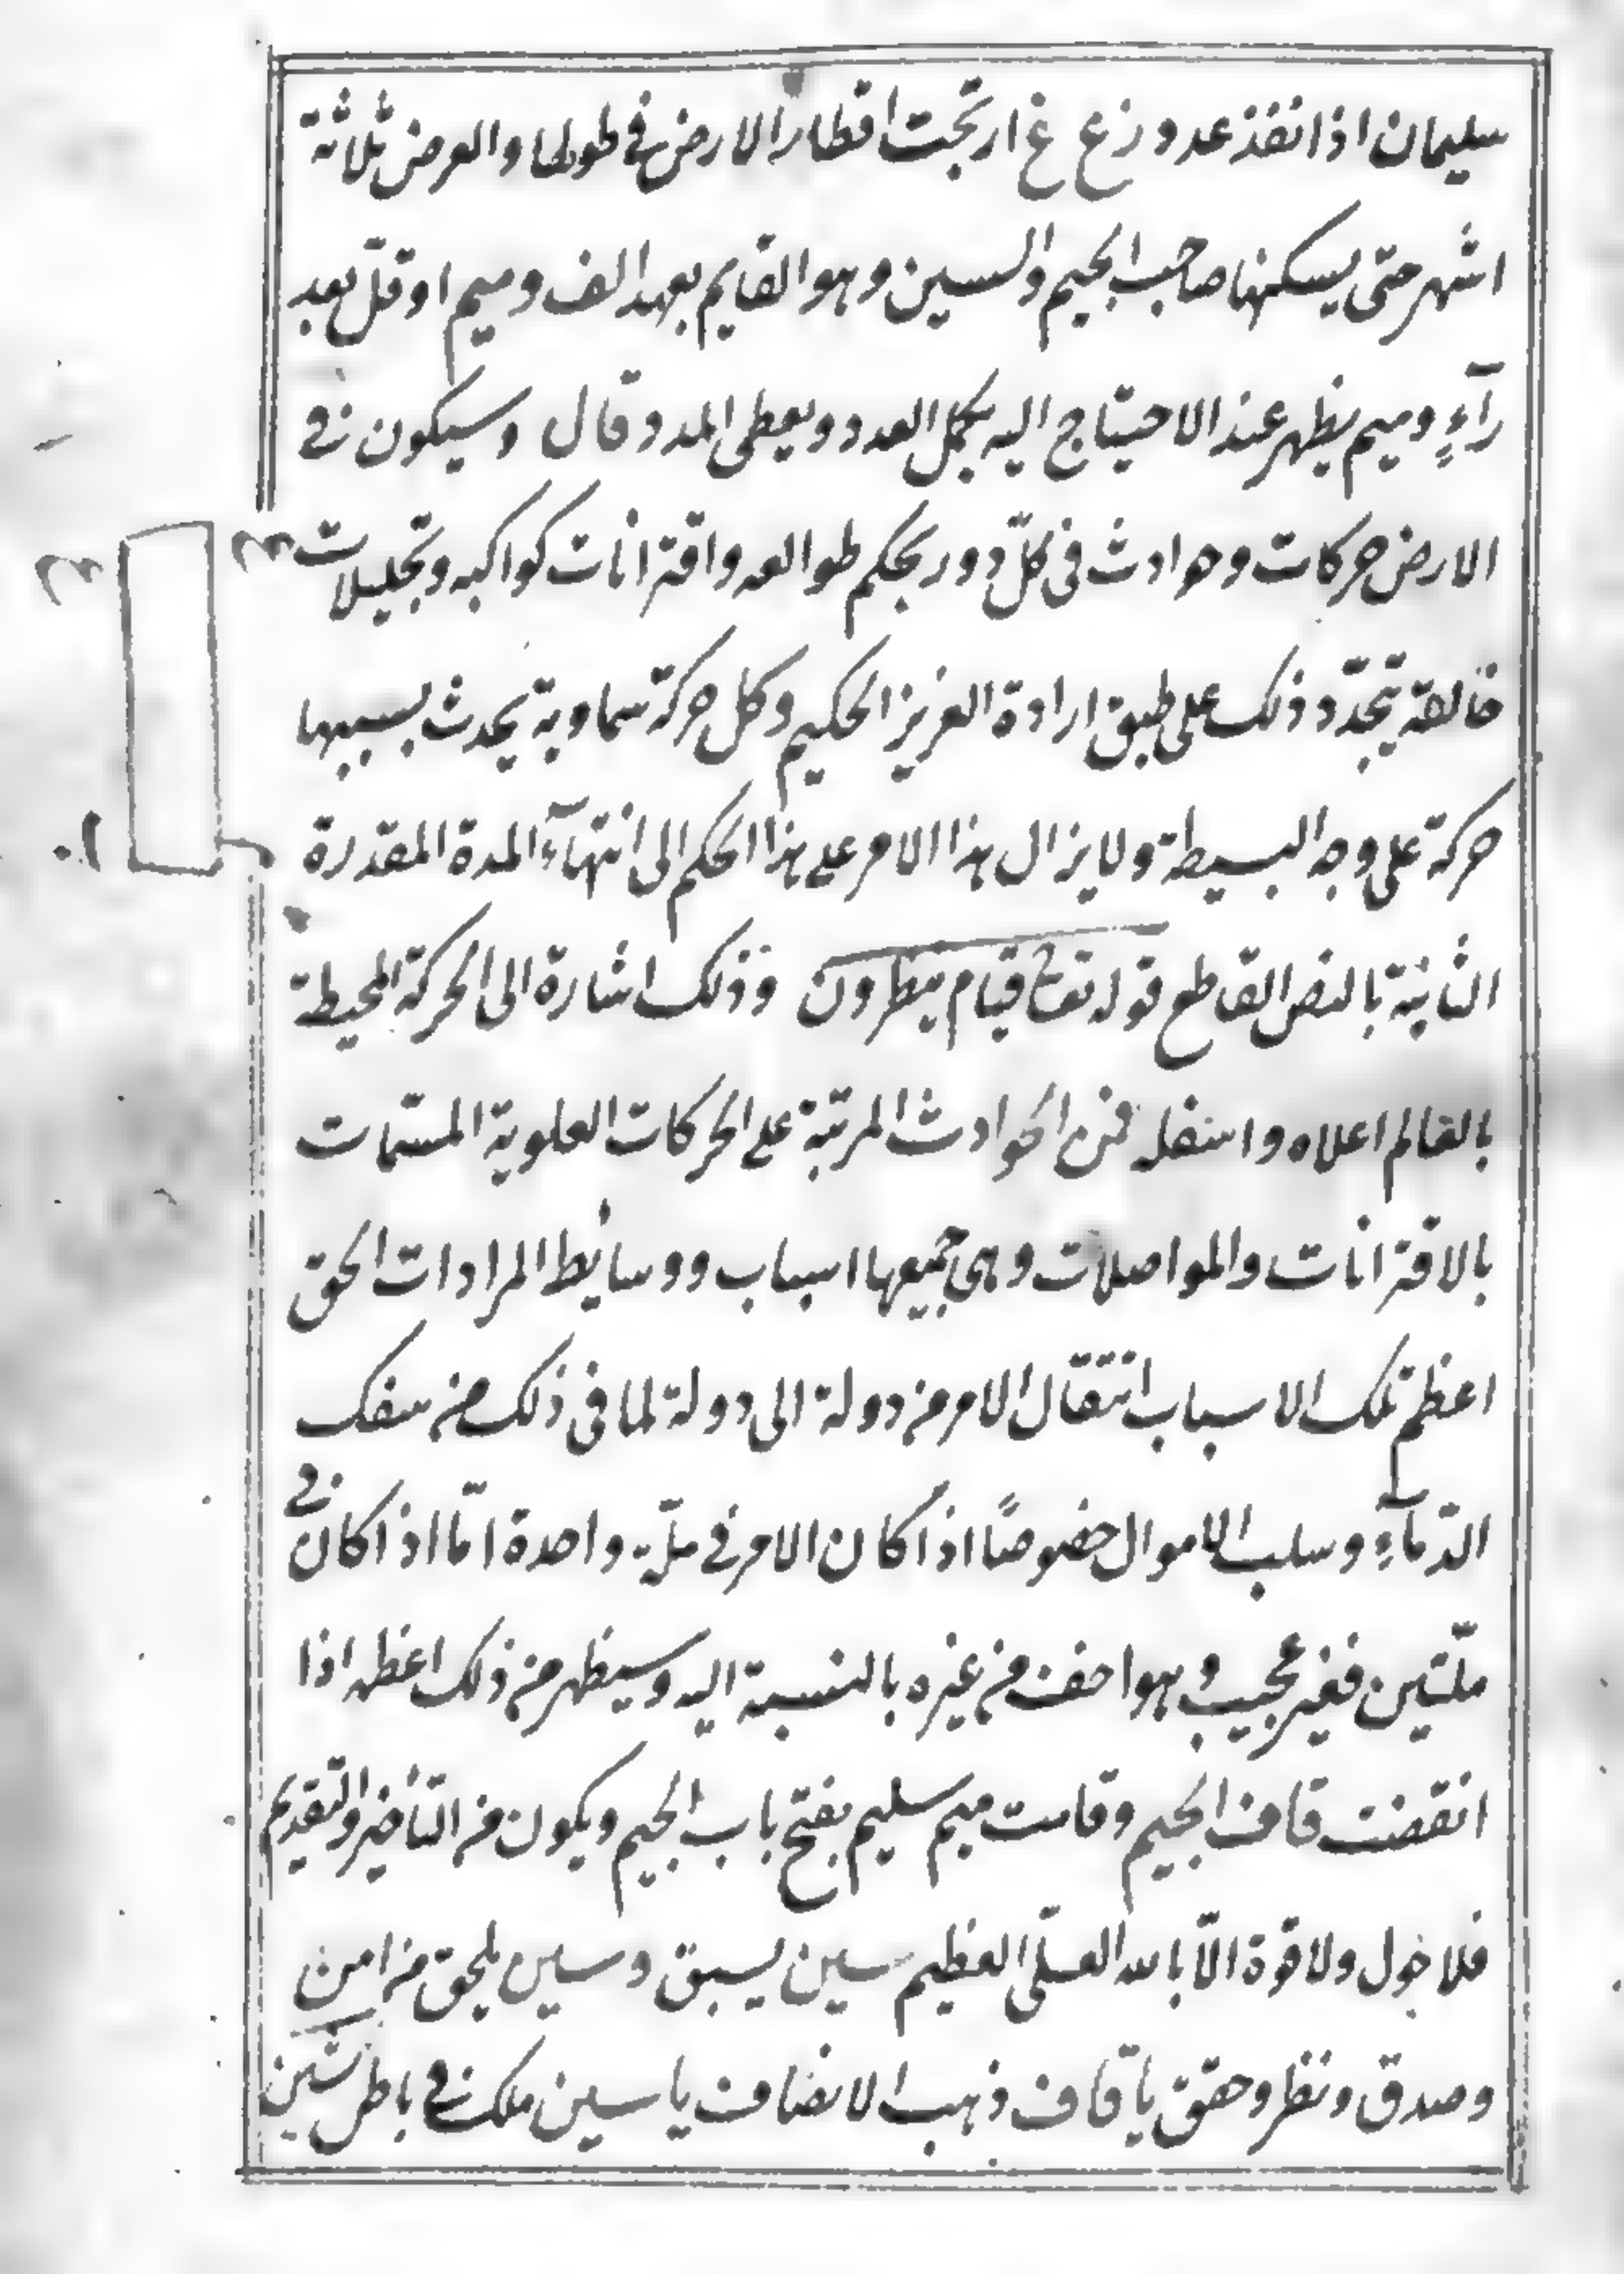 سليمان اذا نفذ عدد زع غ ارتجت اقطار الارض في طولها والعرض ثلاثة
اشهر حتى يسكنها صاحب الجيم والسين وهو القايم بعهد الف وميم او قل بعد
رآءٍ وميم يظهر عند الاحتياج اليه يكمل العدد ويعطى المدد وقال وسيكون في
الارض حركات وحوادث في كلّ دور بحكم طوالعه واقترانات كواكبه وتجليلات
خالقه يتجدّد ذلك على طبق ارادة العزيز الحكيم وكل حركة سماوية يحدث بسببها
حركة على وجه البسيطة ولا يزال هذا الامر على هذا الحكم الى انتهآء المدة المقدرة
الثابتة بالنص القاطع قوله تعا قيام ينظرون وذلك اشارة الى الحركة المحيطة
بالعالم اعلاه واسفله فمن الحوادث المرتبة على الحركات العلوية المسمّات
بالاقترانات والمواصلات وهي جميعها اسباب ووسائط المرادات الحق
اعظم تلك الاسباب انتقال الامر من دولة الى دولة لما في ذلك من سفك
الدّمآءِ وسلب الاموال خصوصًا اذا كان الامر في ملّة واحدة امّا اذا كان في
ملّتين فغير عجيب وهو اخف من غيره بالنسبة اليه وسيظهر من ذلك اعظمه اذا
انقضت قاف الجيم وقامت ميم سليم بفتح باب الجيم ويكون من التأخير والتقديم
فلا حول ولا قوة الّا بالله العلّى العظيم سين يسبق وسين يلحق من امن
وصدق ونظر وحقق يا قاف ذهب الانصاف يا سين ملك في باطل شين